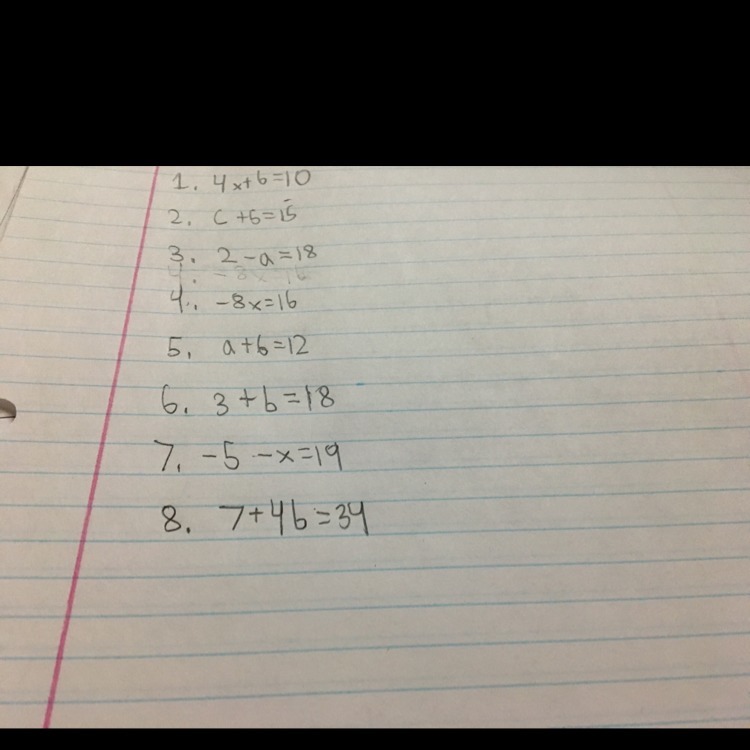 1. 4x+6=10
2. C+6=15
3. 2-a=18
4. -8x 16
4. -8x=16
5. a+b=12
6. 3+b=18
7. -5-x=19
8. 7+4b=34